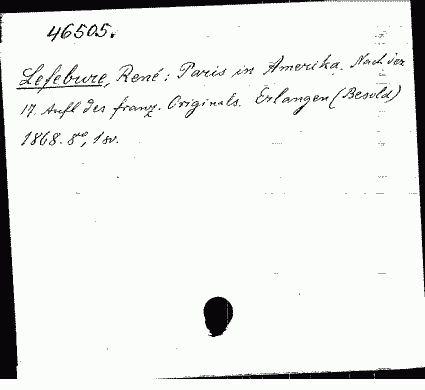 46505.
Lefebure, René: Paris in Amerika. Nach der
17. Aufl des franz. Originals. Erlangen (Besold)
1868. 8°, 1 sv.